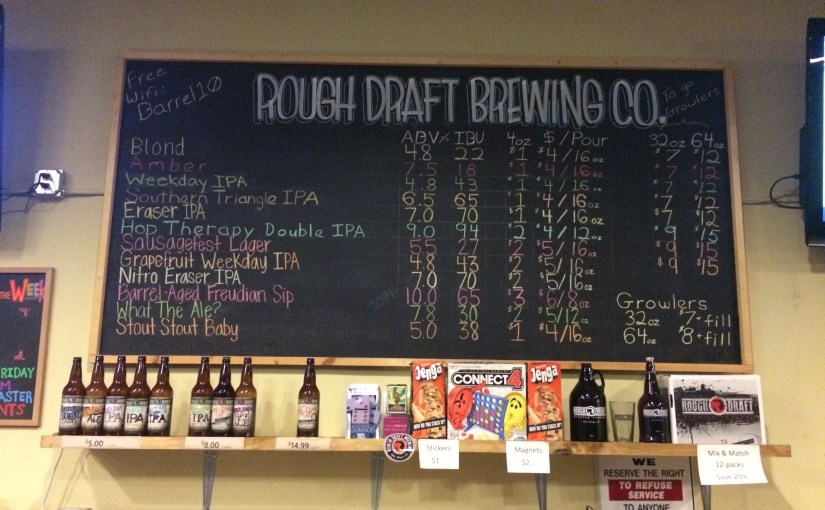 Free
Wifi:
Barrel10
ROUGH DRAFT BREWING CO.
To go
Growlers
ABV% IBU 4oz $/Pour 32oz 64oz
Blond 4.8 22 $1 $4/16oz $7 $12
Amber 7.5 18 $1 $4/16oz $7 $12
Weekday IPA 4.8 43 $1 $4/16oz $7 $12
Southern Triangle IPA 6.5 65 $1 $4/16oz $7 $12
Eraser IPA 7.0 70 $1 $4/16oz $7 $12
Hop Therapy Double IPA 9.0 94 $2 $4/12oz $9 $15
Sausagefest Lager 5.5 27 $2 $5/16oz $9 $15
Grapefruit Weekday IPA 4.8 43 $2 $5/16oz $9 $15
Nitro Eraser IPA 7.0 70 $2 $5/16oz
Barrel-Aged Freudian Sip 10.0 65 $3 $6/8oz
What The Ale? 7.8 30 $2 $5/12oz
Stout Stout Baby 5.0 38 $1 $4/16oz
Growlers
32oz $7+fill
64oz $8+fill
THE WEEK
RIDAY
ASTER
NTS
IPA
IPA
IPA
IPA
$5.00
$8.00
$14.99
Jenga
CONNECT 4
Jenga
ROUGH DRAFT
Stickers
$1
Magnets
$2
Mix & Match
12-packs
Save 20%
WE
RESERVE THE RIGHT
TO REFUSE
SERVICE
TO ANYONE